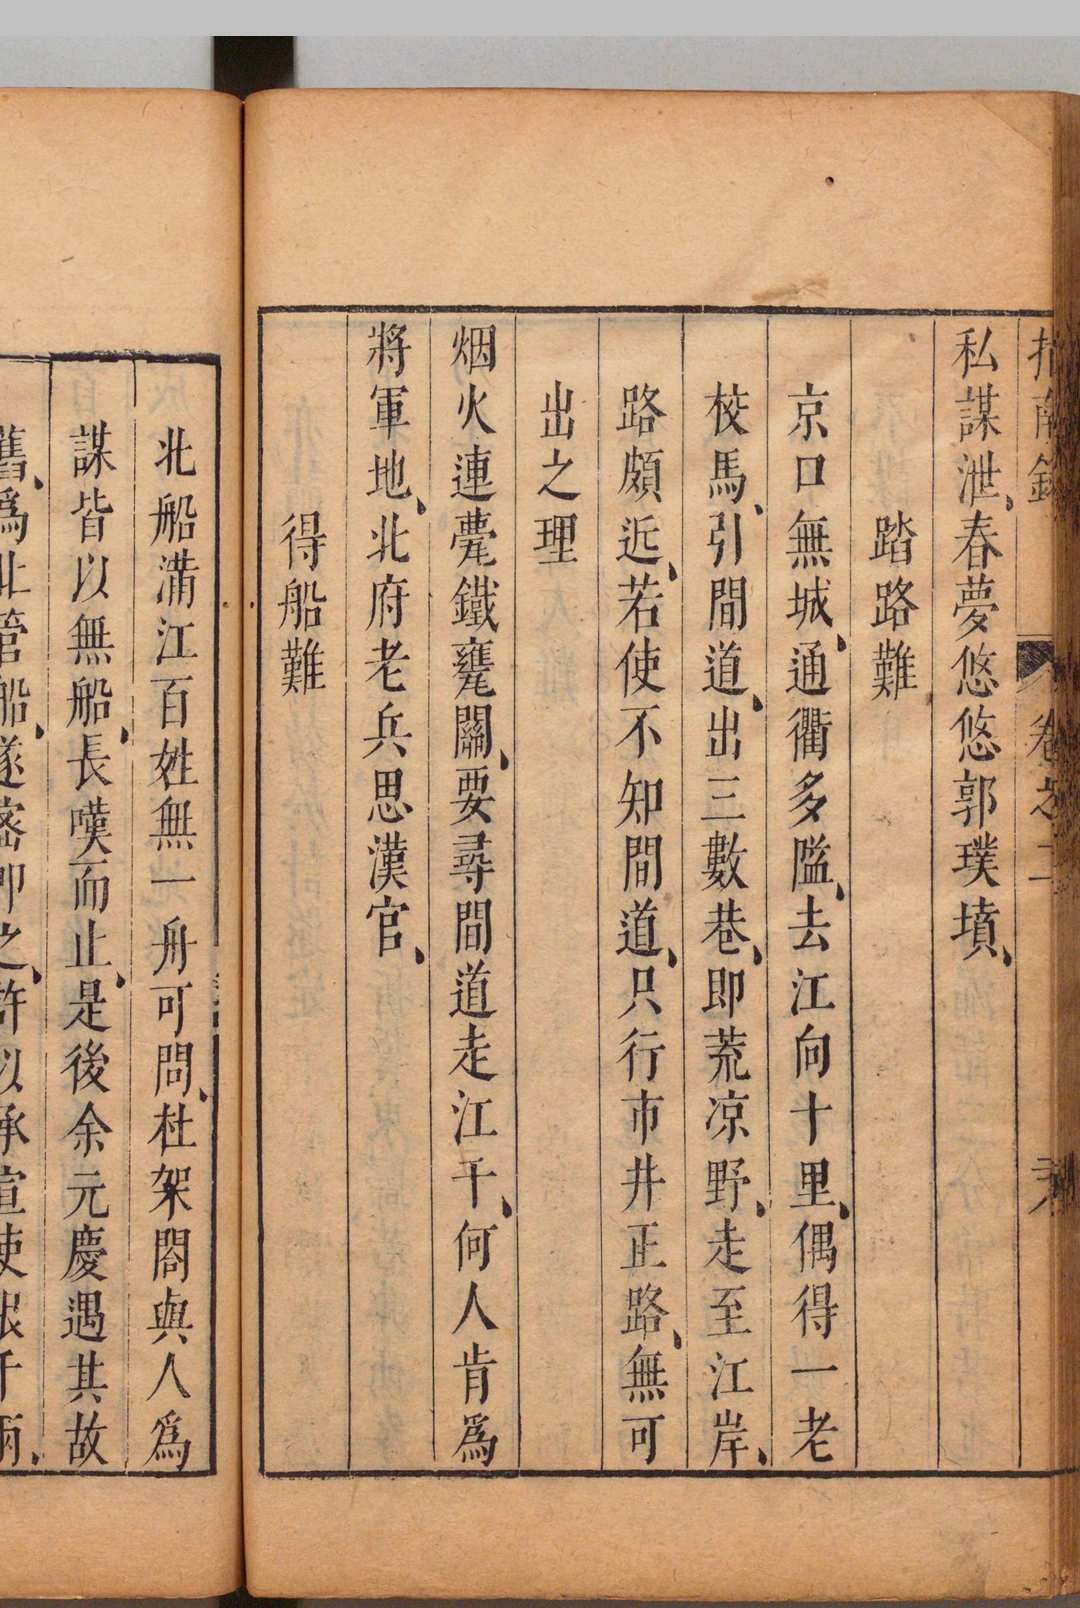 指南錄 卷之二
私謀泄、春夢悠悠郭璞墳、
踏路難
京口無城、通衢多隘、去江向十里、偶得一老
校馬、引間道、出三數巷、即荒凉野、走至江岸、
路頗近、若使不知間道、只行市井正路、無可
出之理
烟火連甍鐵甕關、要尋間道走江干、何人肯爲
將軍地、北府老兵思漢官、
得船難
北船滿江百姓無一舟可問、杜架閣與人爲
謀皆以無船、長嘆而止、是後余元慶遇其故
舊、爲北管船、遂密叩之、許以承宣使銀千兩、